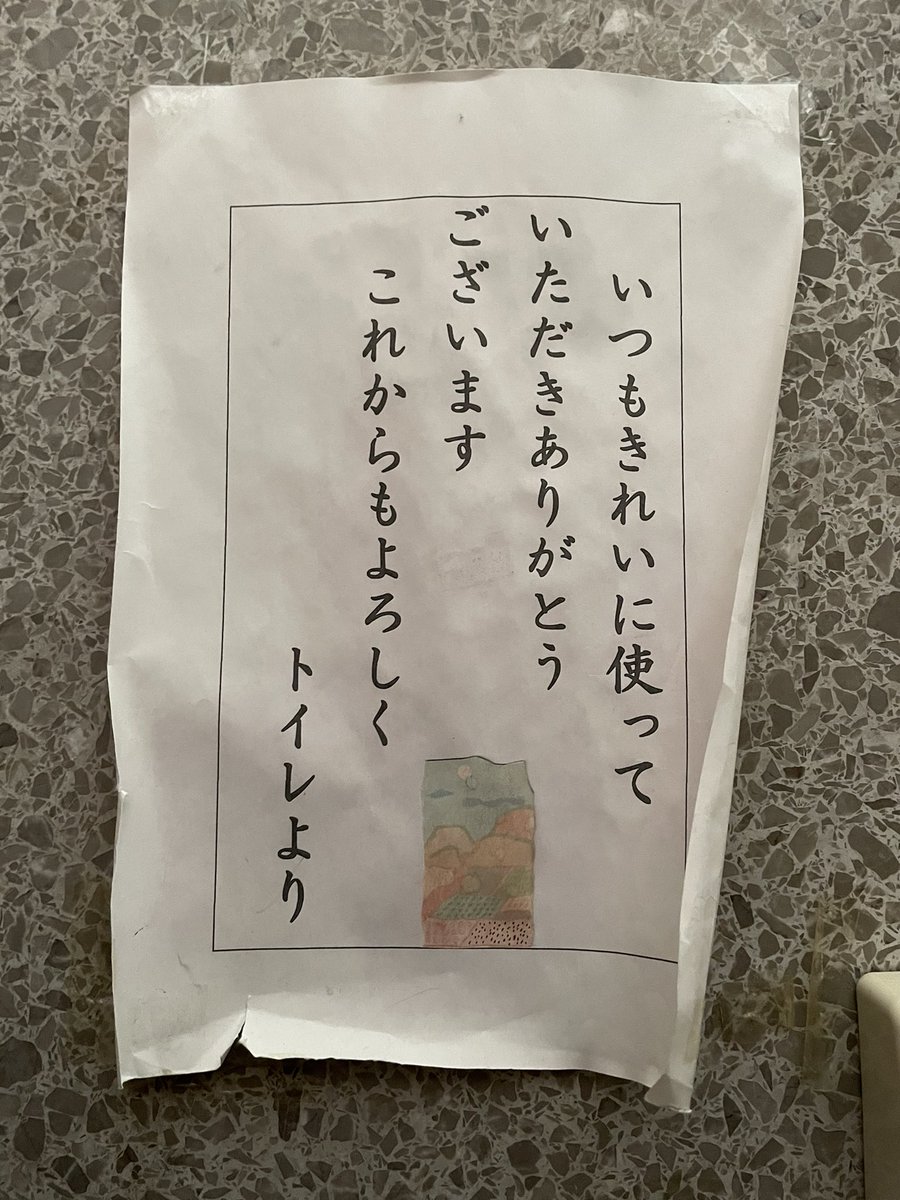 いつもきれいに使って
いただきありがとう
ございます
これからもよろしく
トイレより